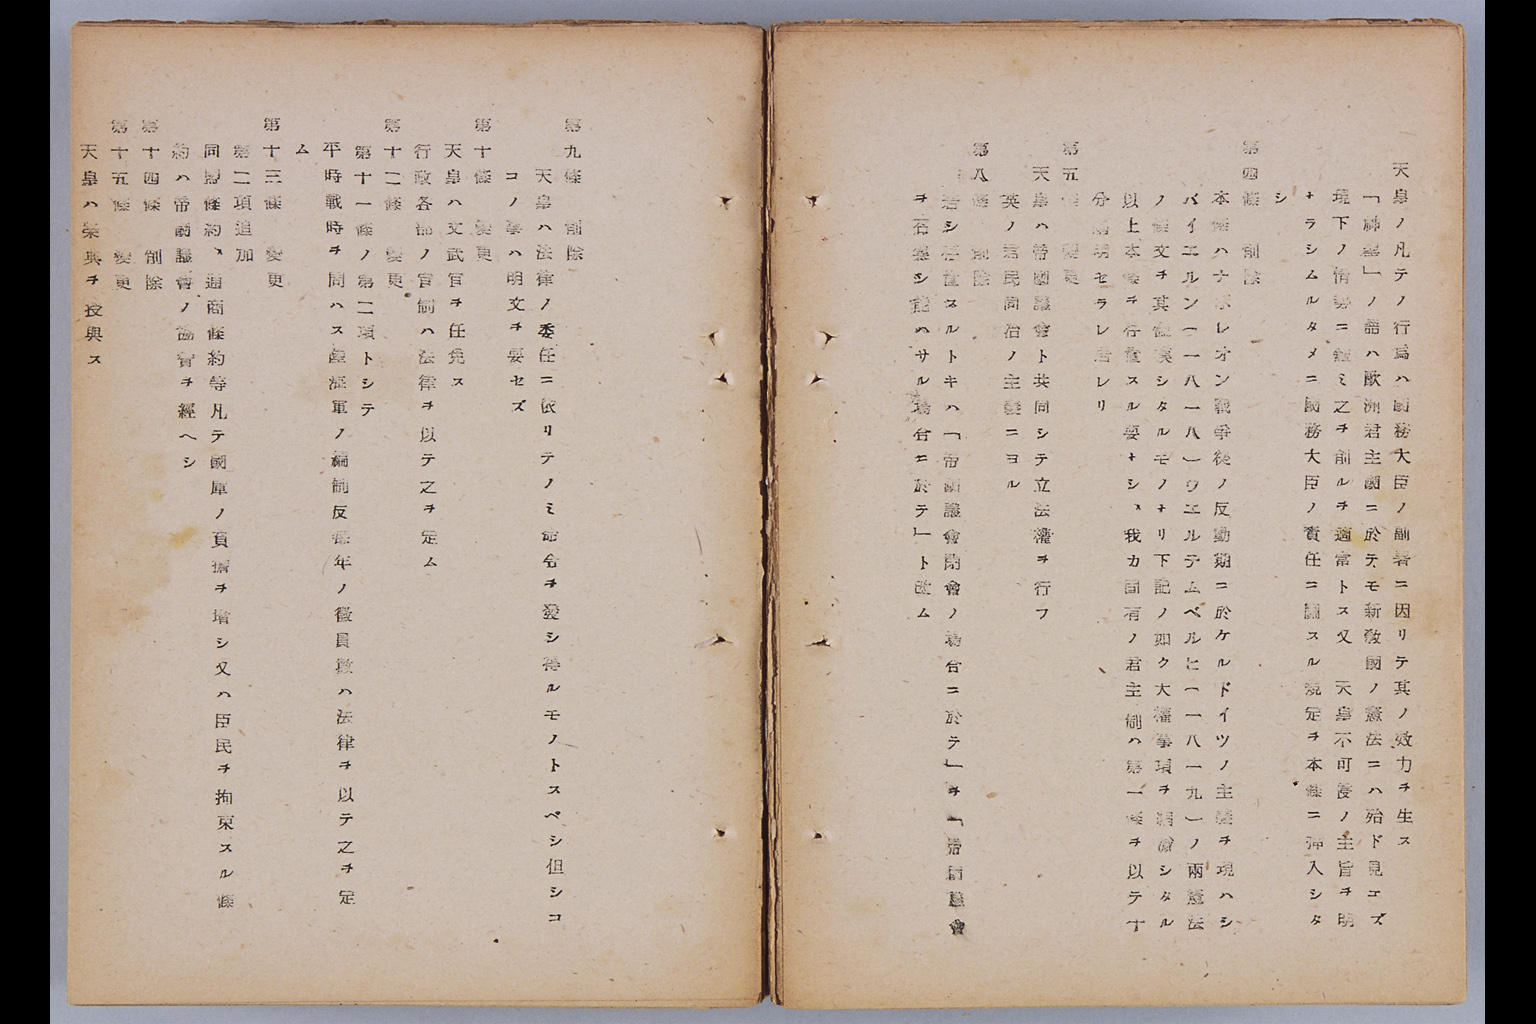 天皇ノ凡テノ行爲ハ國務大臣ノ副署ニ因リテ其ノ效力ヲ生ス
「神聖」ノ語ハ歐洲君主國ニ於テモ新敎國ノ憲法ニハ殆ド見エズ
現下ノ情勢ニ鑑ミ之ヲ削ルヲ適當トス又 天皇不可侵ノ主旨ヲ明
ナラシムルタメニ國務大臣ノ責任ニ關スル規定ヲ本條ニ挿入シタ
シ
第四條 削除
本條ハナポレオン戰爭後ノ反動期ニ於ケルドイツノ主義ヲ現ハシ
バイエルン(一八一八)ウエルテムベルヒ(一八一九)ノ兩憲法
ノ條文ヲ其儘 シタルモノナリ下記ノ如ク大權事項ヲ削減シタル
以上本條ヲ存置スル要ナシ、我カ固有ノ君主制ハ第一條ヲ以テ十
分 明セラレ居レリ
第五條 變更
天皇ハ帝國議會ト共同シテ立法權ヲ行フ
英ノ君民同治ノ主義ニヨル
第八條 削除
若シ存置スルトキハ「帝國議會閉會ノ場合ニ於テ」ヲ「帝國議會
ヲ召集シ能ハサル場合ニ於テ」ト改ム
第九條 削除
天皇ハ法律ノ委任ニ依リテノミ命令ヲ發シ得ルモノトスベシ但シコ
コノ事ハ明文ヲ要セズ
第十條 變更
天皇ハ文武官ヲ任免ス
行政各部ノ官制ハ法律ヲ以テ之ヲ定ム
第十二條 變更
第十一條ノ第二項トシテ
平時戰時ヲ問ハス陸海軍ノ編制及每年ノ徵員數ハ法律ヲ以テ之ヲ定
ム
第十三條 變更
第二項追加
同盟條約、通商條約等凡テ國庫ノ負擔ヲ增シ又ハ臣民ヲ拘束スル條
約ハ帝國議會ノ協贊ヲ經ヘシ
第十四條 削除
第十五條 變更
天皇ハ榮典ヲ授與ス